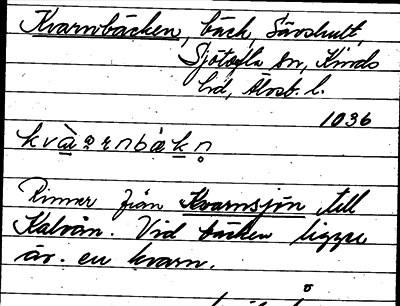 Kvarnbäcken, bäck, Sävshult,
Sjötofta sn, Kinds
hd, Älvsb. l.
1036
Rinner från Kvarnsjön till
Kalvån. Vid bäcken ligger
äv. en kvarn.